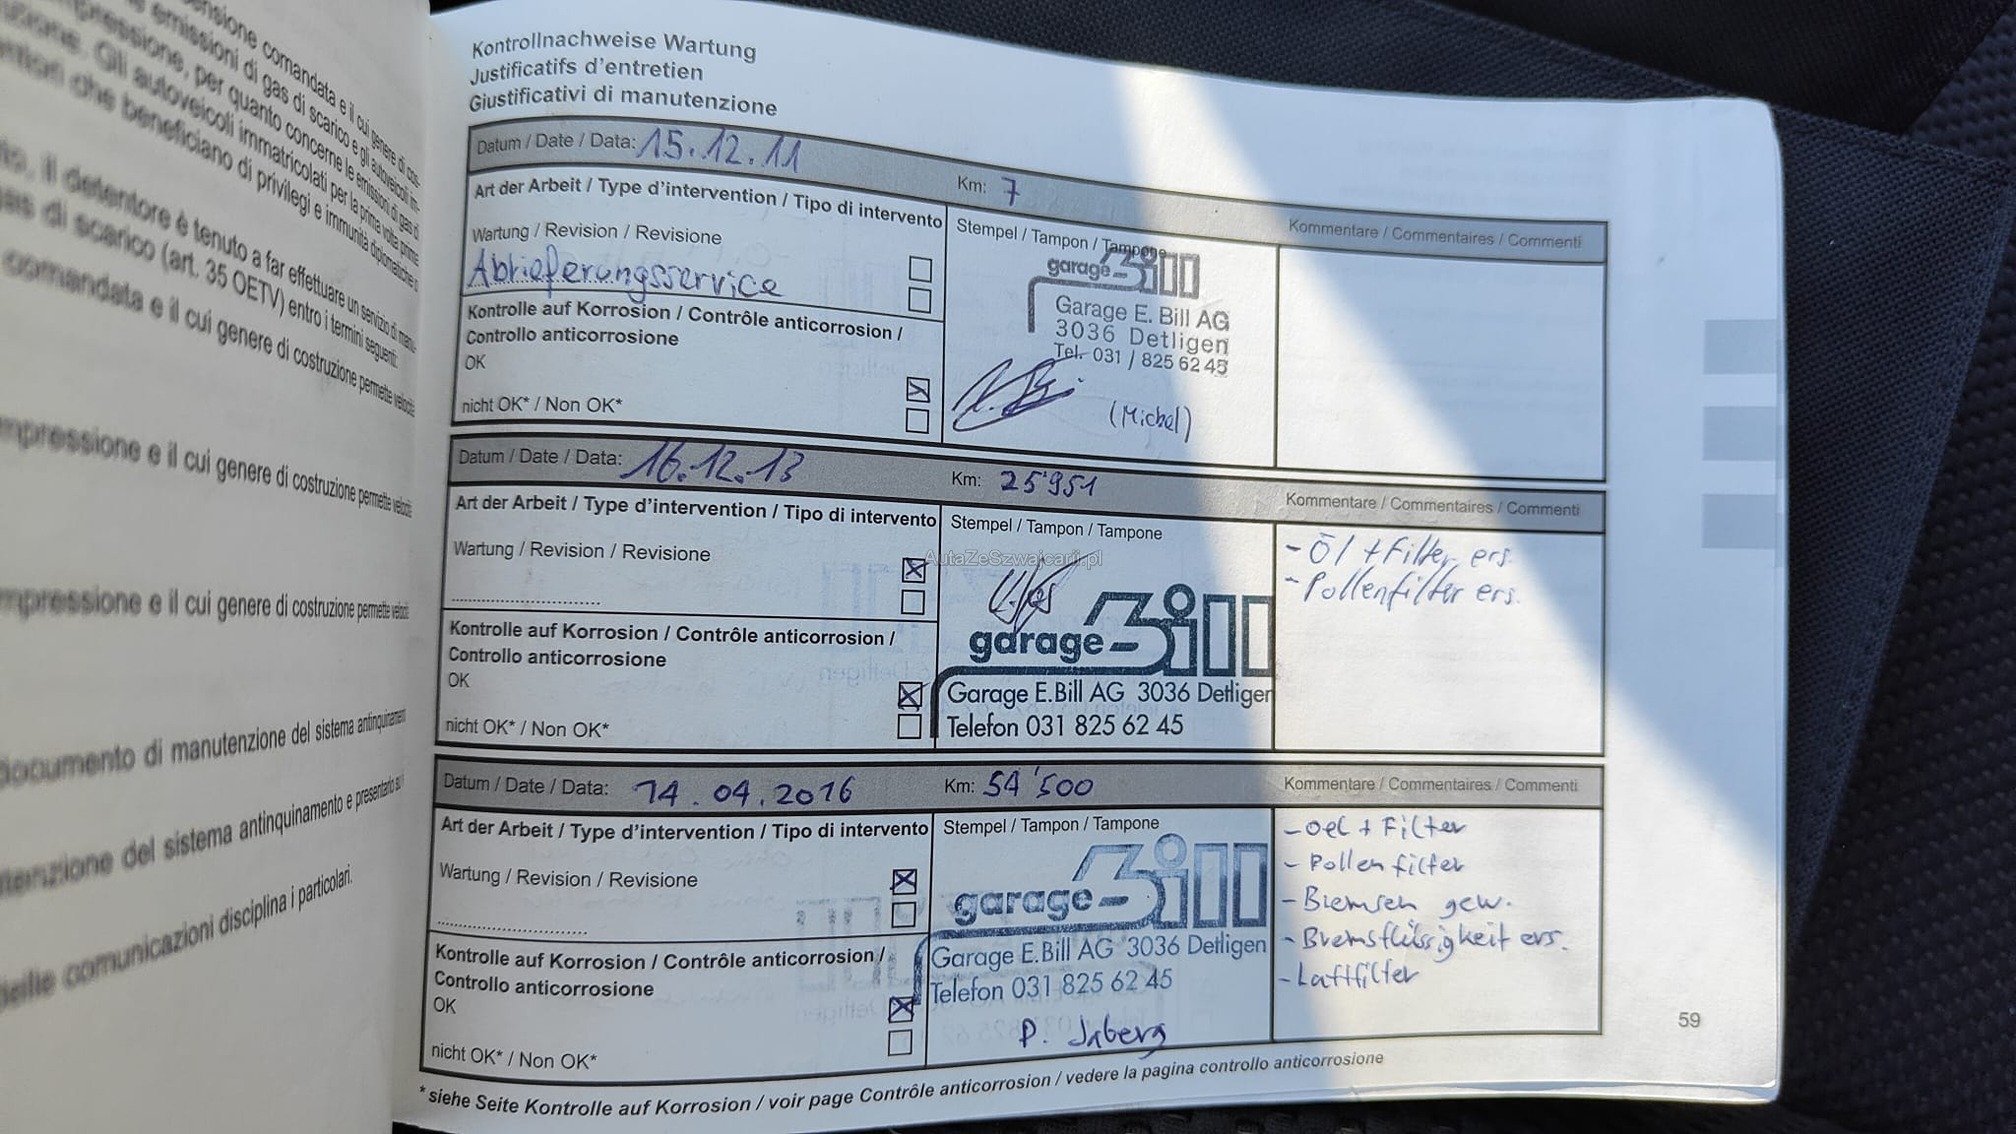 ensione comandata e il cui genere di cos-
emissioni di gas di scarico e gli autoveicoli im-
pressione, per quanto concerne le emissioni di gas di
zione. Gli autoveicoli immatricolati per la prima volta prima
che beneficiano di privilegi e immunità diplomatiche o
il detentore è tenuto a far effettuare un servizio di manu-
gas di scarico (art. 35 OETV) entro i termini seguenti:
comandata e il cui genere di costruzione permette velocità
mpressione e il cui genere di costruzione permette velocità
mpressione e il cui genere di costruzione permette velocità
documento di manutenzione del sistema antinquinamento
tenzione del sistema antinquinamento e presentarlo su
delle comunicazioni disciplina i particolari.
Kontrollnachweise Wartung
Justificatifs d'entretien
Giustificativi di manutenzione
Datum / Date / Data: 15.12.11 Km: 7
Art der Arbeit / Type d'intervention / Tipo di intervento
Stempel / Tampon / Tampone
Kommentare / Commentaires / Commenti
Wartung / Revision / Revisione
Ablieferungsservice
Kontrolle auf Korrosion / Contrôle anticorrosion /
Controllo anticorrosione
OK
nicht OK* / Non OK*
garage Bill
Garage E. Bill AG
3036 Detligen
Tel. 031 / 825 62 45
(Michel)
Datum / Date / Data: 16.12.13 Km: 25'951
Kommentare / Commentaires / Commenti
Art der Arbeit / Type d'intervention / Tipo di intervento
Stempel / Tampon / Tampone
Wartung / Revision / Revisione
Kontrolle auf Korrosion / Contrôle anticorrosion /
Controllo anticorrosione
OK
nicht OK* / Non OK*
AutaZeSzwajcarii.pl
garage Bill
Garage E. Bill AG 3036 Detligen
Telefon 031 825 62 45
- Öl + Filter ers.
- Pollenfilter ers.
Datum / Date / Data: 14.04.2016 Km: 54'500
Kommentare / Commentaires / Commenti
Art der Arbeit / Type d'intervention / Tipo di intervento
Stempel / Tampon / Tampone
Wartung / Revision / Revisione
Kontrolle auf Korrosion / Contrôle anticorrosion /
Controllo anticorrosione
OK
nicht OK* / Non OK*
garage Bill
Garage E. Bill AG 3036 Detligen
Telefon 031 825 62 45
P. Jaberg
- Oel + Filter
- Pollenfilter
- Bremsen gew.
- Bremsflüssigkeit ers.
- Luftfilter
59
* siehe Seite Kontrolle auf Korrosion / voir page Contrôle anticorrosion / vedere la pagina controllo anticorrosione